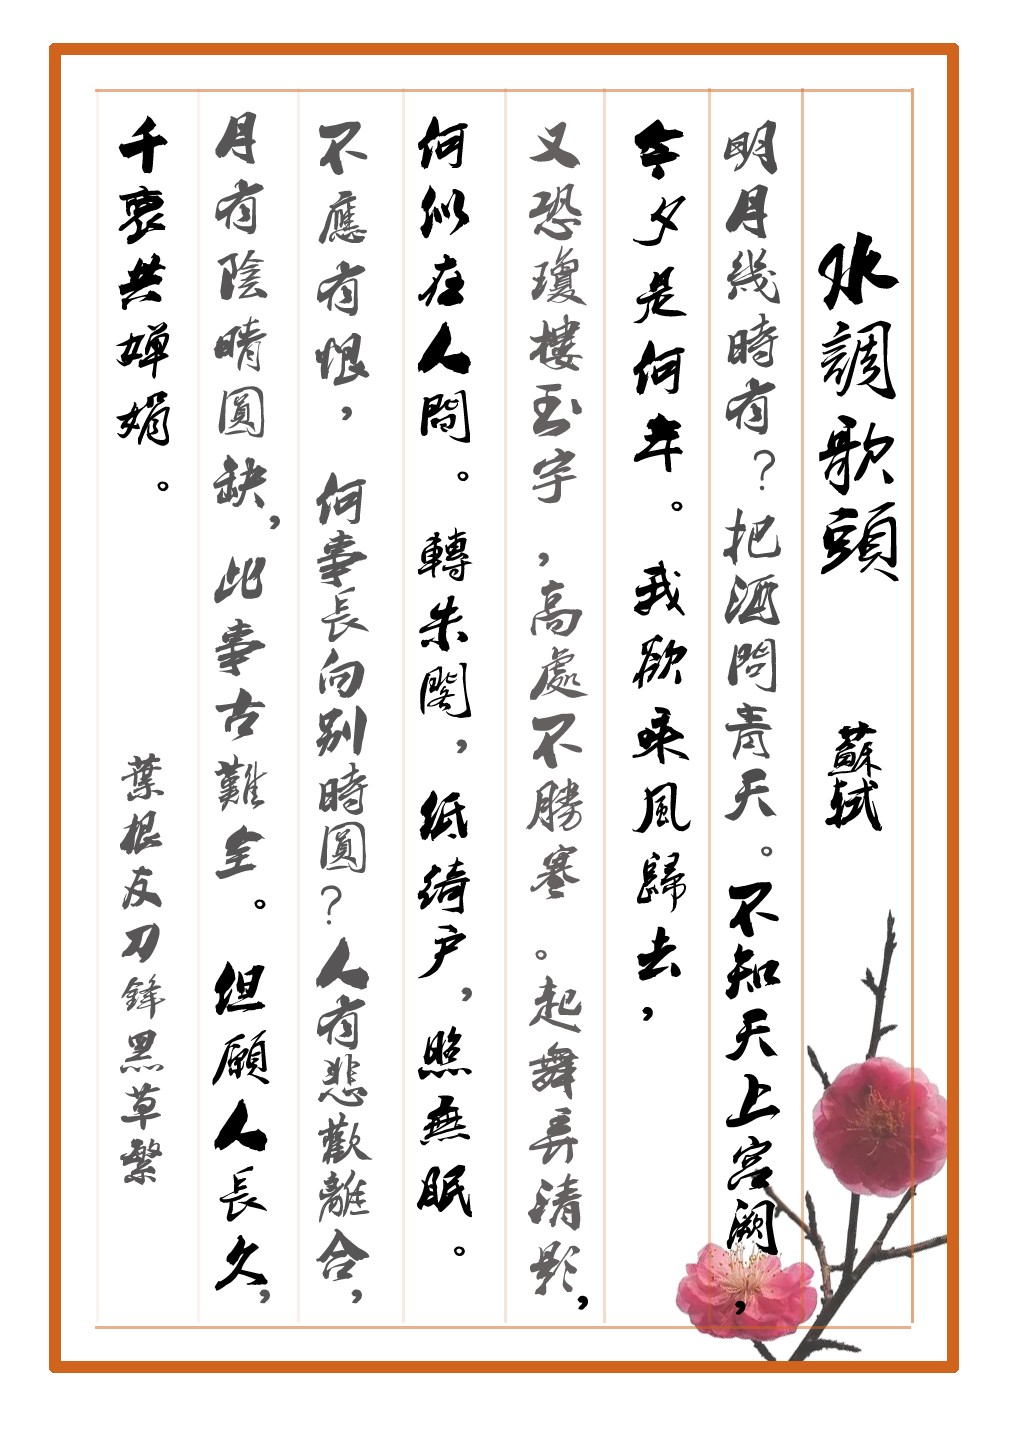 水調歌頭 蘇軾
明月幾時有？把酒問青天。不知天上宮闕，
今夕是何年。我欲乘風歸去，
又恐瓊樓玉宇，高處不勝寒。起舞弄清影，
何似在人間。轉朱閣，低綺户，照無眠。
不應有恨，何事長向别時圓？人有悲歡離合，
月有陰晴圓缺，此事古難全。但願人長久，
千裏共嬋娟。
葉根友刀鋒黑草繁